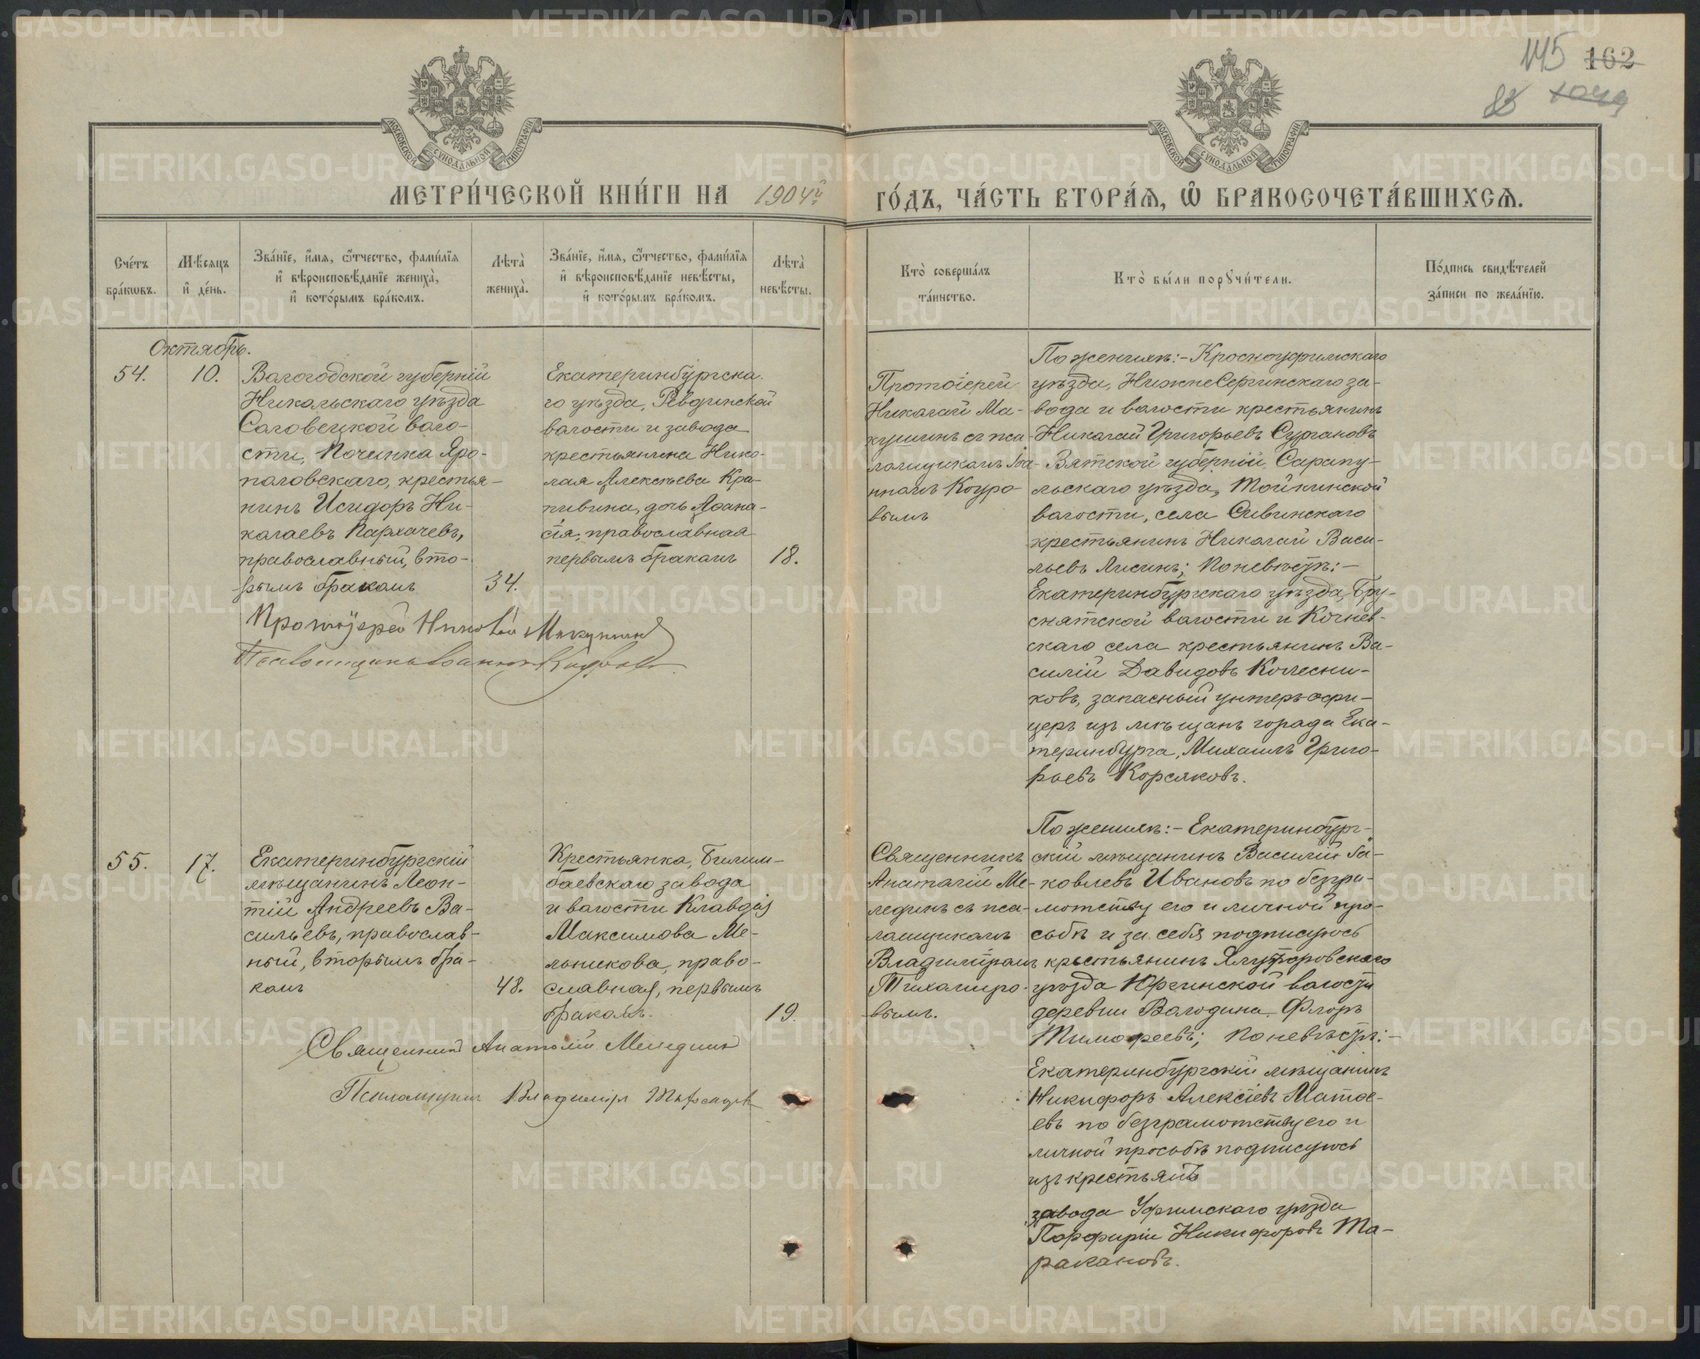 145 162
МОСКОВСКОЙ СѴНОДАЛЬНОЙ ТИПОГРАФІИ
МОСКОВСКОЙ СѴНОДАЛЬНОЙ ТИПОГРАФІИ
МЕТРИ́ЧЕСКОЙ КНИ́ГИ НА 1904й ГО́ДЪ, ЧА́СТЬ ВТОРА́Ѧ, Ѡ҆ БРАКОСОЧЕТА́ВШИХСѦ.
Сче́тъ
бра́кѡвъ.
Мѣ́сѧцъ
и҆ де́нь.
Зва́нїе, и҆́мѧ, ѻ҆́тчество, фами́лїѧ
и҆ вѣроисповѣ́данїе жениха̀,
и҆ кото́рымъ бра́комъ.
Лѣ́та̀
жениха̀.
Зва́нїе, и҆́мѧ, ѻ҆́тчество, фами́лїѧ
и҆ вѣроисповѣ́данїе невѣ́сты,
и҆ кото́рымъ бра́комъ.
Лѣ́та̀
невѣ́сты.
Кто̀ соверша́лъ
та́инство.
Кто̀ бы́ли порꙋчи́тели.
По́дпись свидѣ́телей
за́писи по жела́нїю.
Октябрь.
54.
10.
Вологодской губерніи
Никольскаго уѣзда
Соловецкой воло-
сти, Починка Яро-
половскаго, крестья-
нинъ Исидоръ Ни-
колаевъ Пархачевъ,
православный, вто-
рымъ бракомъ
34.
Екатеринбургска-
го уѣзда, Ревдинской
волости и завода
крестьянина Нико-
лая Алексѣева Кра-
пивина, дочь Аѳана-
сія, православная
первымъ бракомъ
18.
Протоіерей
Николай Ма-
кушинъ съ пса-
ломщикомъ Іоа-
нномъ Коуро-
вымъ
По женихѣ:- Красноуфимскаго
уѣзда, НижнеСергинскаго за-
вода и волости крестьянинъ
Николай Григорьевъ Сургановъ
Вятской губерніи, Сарапу-
льскаго уѣзда, Тойкинской
волости, села Сивинскаго
крестьянинъ Николай Васи-
льевъ Лисинъ; По невѣстѣ:-
Екатеринбургскаго уѣзда, Бру-
снятской волости и Кочнев-
скаго села крестьянинъ Ва-
силій Давидовъ Колесни-
ковъ, запасный унтеръ-офи-
церъ изъ мѣщанъ города Ека-
теринбурга, Михаилъ Григо-
рьевъ Корсяковъ.
Протоіерей Николай Макушинъ
Псаломщикъ Іоаннъ Коуровъ
55.
17.
Екатеринбургскій
мѣщанинъ Леон-
тій Андреевъ Ва-
сильевъ, православ-
ный, вторымъ бра-
комъ
48.
Крестьянка, Билим-
баевскаго завода
и волости Клавдія
Максимова Ме-
льникова, право-
славная, первымъ
бракомъ.
19.
Священникъ
Анатолій Ме-
лединъ съ пса-
ломщикомъ
Владиміромъ
Тихомиро-
вымъ.
По женихѣ:- Екатеринбург-
скій мѣщанинъ Василій Іа-
ковлевъ Ивановъ по безгра-
мотству его и личной про-
сьбѣ и за себя подписуюсь
крестьянинъ Ялуторовскаго
уѣзда Юргинской волости
деревни Володина Флоръ
Тимофеевъ; По невѣстѣ:-
Екатеринбургскій мѣщанинъ
Никифоръ Алексіевъ Матве-
евъ по безграмотству его и
личной просьбѣ подписуюсь
изъ крестьянъ
завода Уфимскаго уѣзда
Порфирій Никифоровъ Та-
ракановъ.
Священникъ Анатолій Мелединъ
Псаломщикъ Владиміръ Тихомировъ